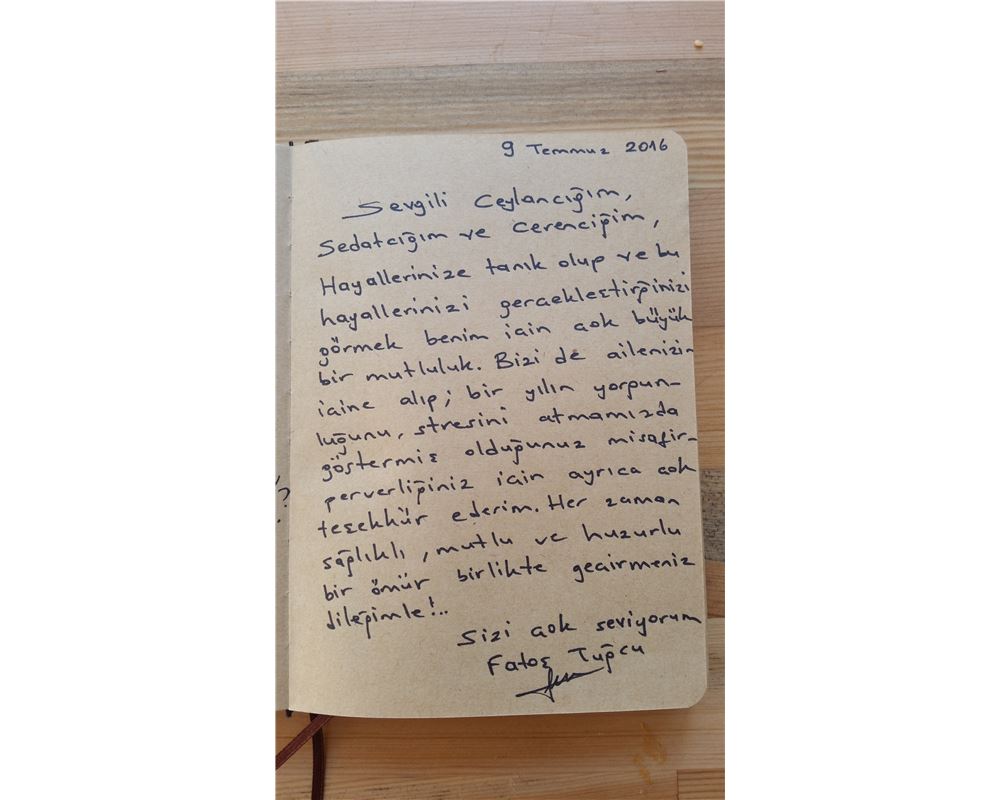 9 Temmuz 2016
Sevgili Ceylancığım,
Sedatcığım ve Cerenciğim,
Hayallerinize tanık olup ve bu
hayallerinizi gerçekleştirğinizi
görmek benim için çok büyük
bir mutluluk. Bizi de ailenizin
içine alıp; bir yılın yorgun-
luğunu, stresini atmamızda
göstermiş olduğunuz misafir-
perverliğiniz için ayrıca çok
teşekkür ederim. Her zaman
sağlıklı, mutlu ve huzurlu
bir ömür birlikte geçirmeniz
dileğimle!..
Sizi çok seviyorum
Fatoş Tuğcu
?